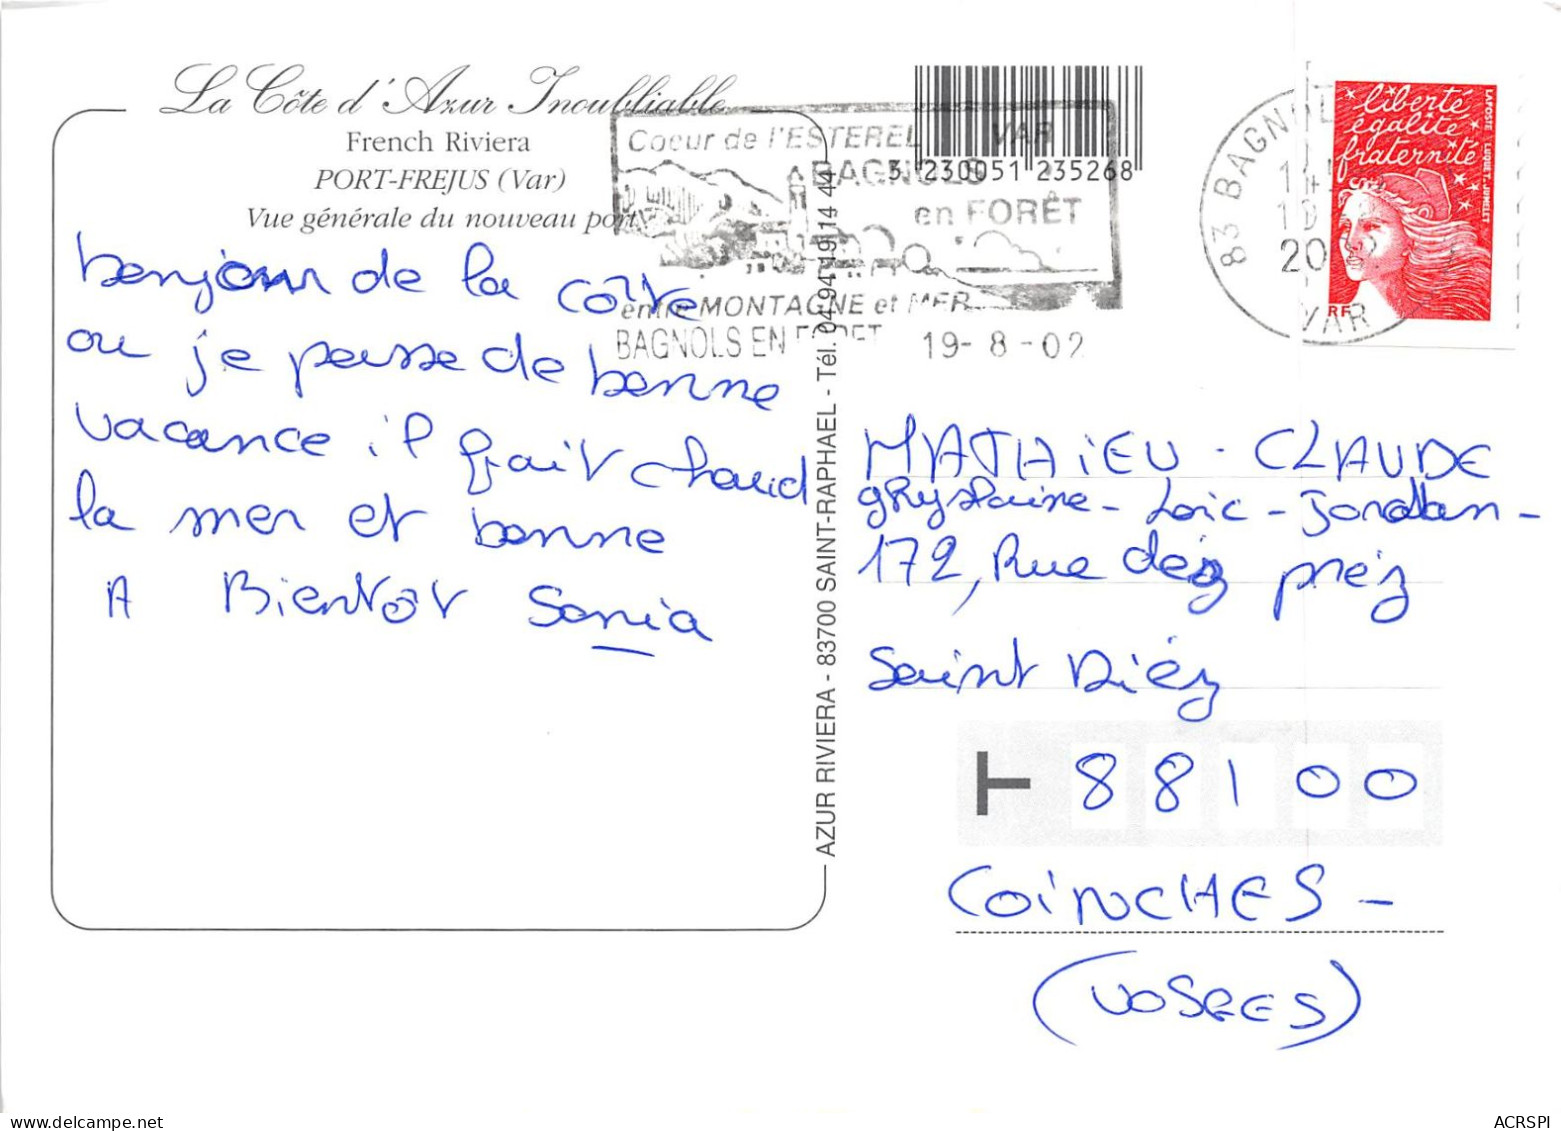 La Côte d'Azur Inoubliable
French Riviera
PORT-FREJUS (Var)
Vue générale du nouveau port
bonjour de la côte
ou je passe de bonne
vacance il fait chaud
la mer et bonne
A Bientôt Sonia
AZUR RIVIERA - 83700 SAINT-RAPHAEL - Tél. 04 94 19 14 44
Coeur de l'ESTEREL VAR
BAGNOLS
en FORÊT
entre MONTAGNE et MER
BAGNOLS EN FORET 19-8-02
3 230051 235268
83 BAGNOL
VAR
liberté
égalité
fraternité
RF
LAPOSTE LUQUET-JUMELET
MATHiEU - CLAUDE
Loïc - Jordan -
172, Rue
Saint Diéz
T 88100
COiNCHES -
(VOSGES)
ACRSPI